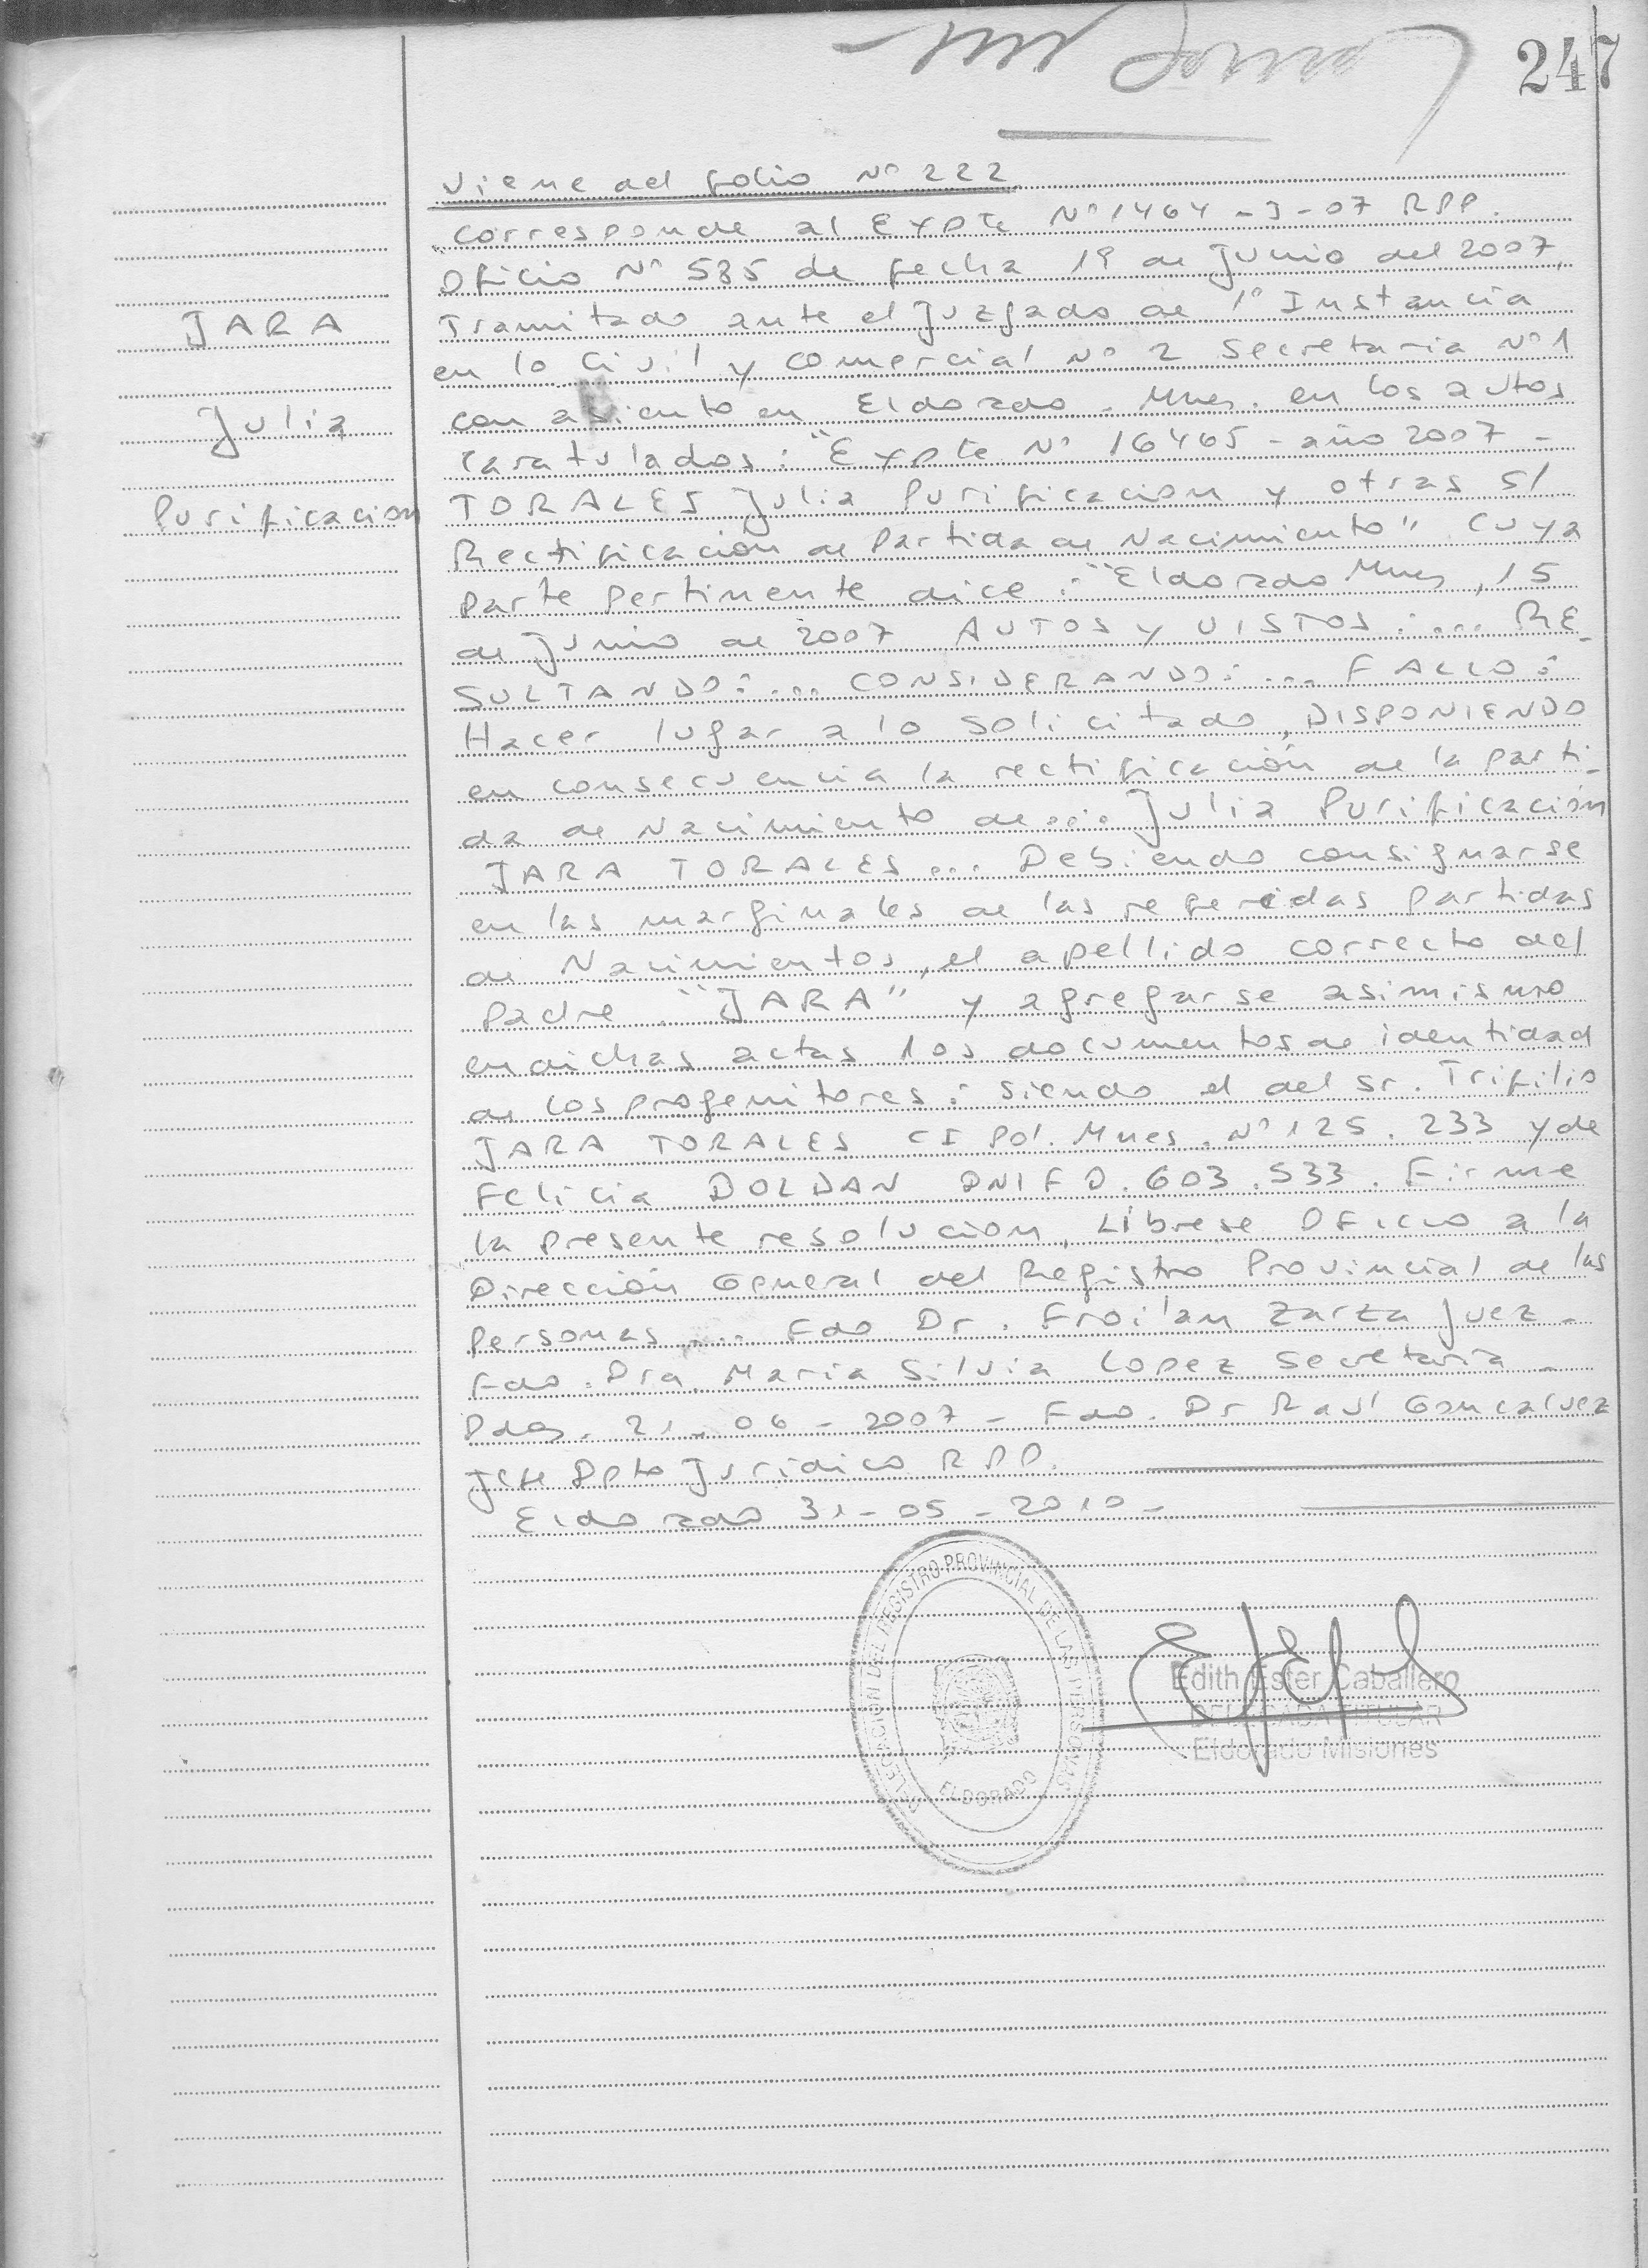 247
Viene del folio Nº 222
Corresponde al Expte Nº 1464-J-07 RPP.
Oficio Nº 535 de fecha 19 de Junio del 2007,
Tramitado ante el Juzgado de 1º Instancia
JARA
en lo Civil y Comercial Nº 2 Secretaria Nº 1
con asiento en Eldorado - Mnes. en los autos
Julia
caratulados: "Expte Nº 16465 - año 2007 -
TORALES Julia Purificacion y otras S/
Purificacion
Rectificación de Partida de Nacimiento" cuya
parte pertinente dice: "Eldorado Mnes, 15
de Junio de 2007 AUTOS Y VISTOS: ... RE-
SULTANDO: ... CONSIDERANDO: ... FALLO:
Hacer lugar a lo solicitado, DISPONIENDO
en consecuencia la rectificación de la parti-
da de Nacimiento de... Julia Purificación
JARA TORALES ... Debiendo consignarse
en las marginales de las referidas partidas
de Nacimientos, el apellido correcto del
padre "JARA" y agregarse asimismo
en dichas actas los documentos de identidad
de los progenitores: siendo el del Sr. Trifilio
JARA TORALES CI Pol. Mnes. Nº 125.233 y de
Felicia DOLDAN DNI F 0.603.533. Firme
la presente resolucion, Líbrese Oficio a la
Dirección General del Registro Provincial de las
Personas .... Fdo Dr. Froilan Zarza Juez -
Fdo. Dra. Maria Silvia Lopez Secretaria -
Pdas. 21-06-2007 - Fdo. Dr Raul Goncalvez
Jefe Dpto Juridico RPP.
Eldorado 31-05-2010 -
DELEGACION DEL REGISTRO PROVINCIAL DE LAS PERSONAS
ELDORADO
Edith Ester Caballero
DELEGADA TITULAR
Eldorado Misiones